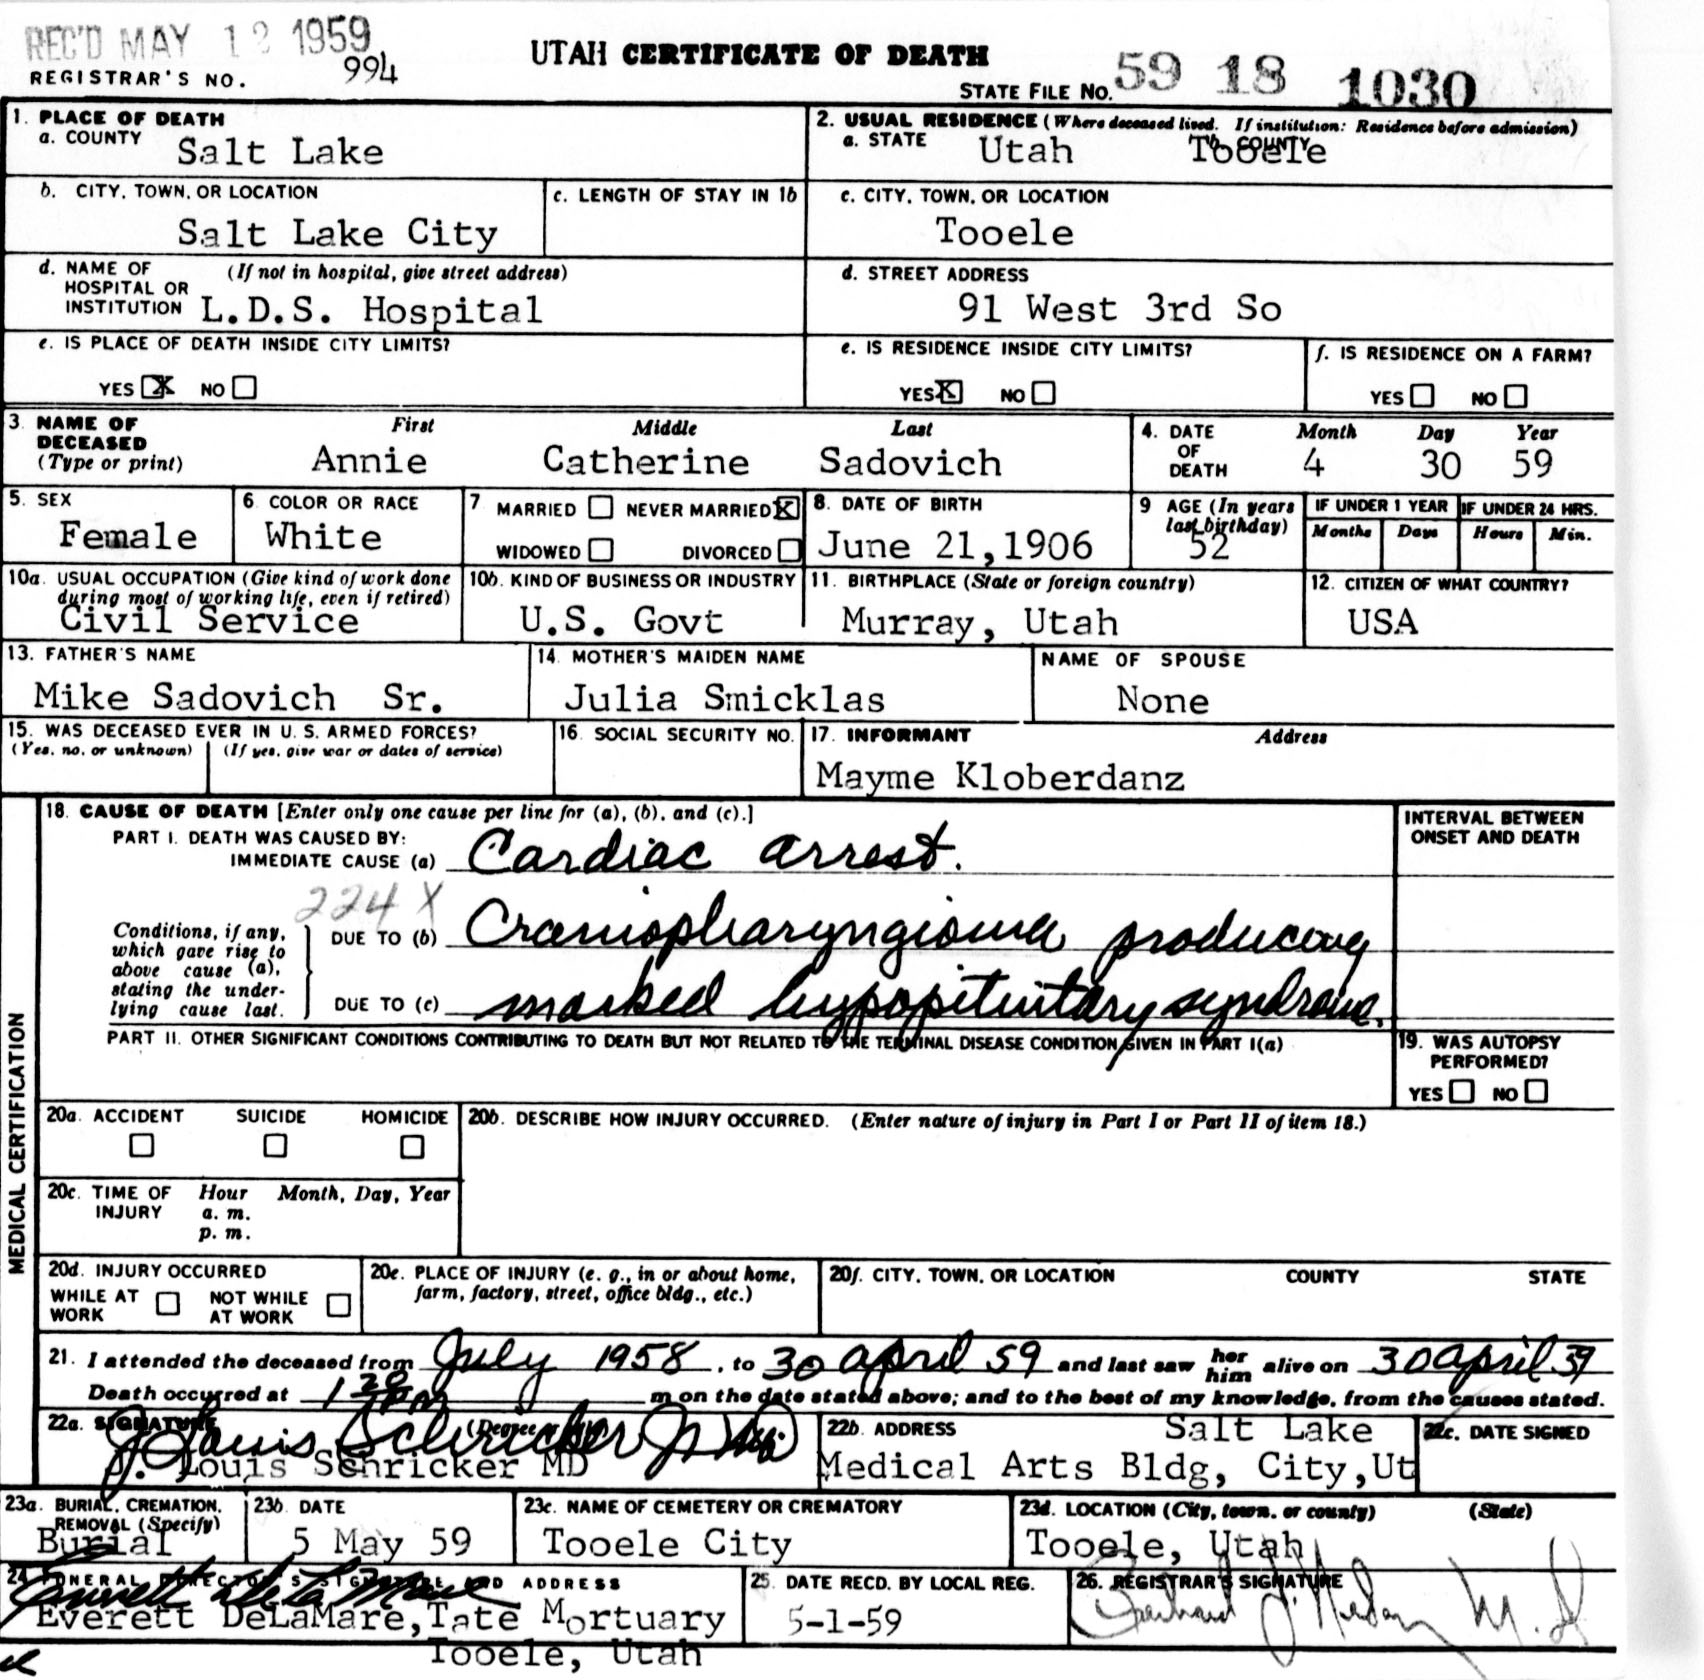 REC'D MAY 12 1959
REGISTRAR'S NO. 994
UTAH CERTIFICATE OF DEATH
STATE FILE NO. 59 18 1030
1. PLACE OF DEATH
a. COUNTY Salt Lake
2. USUAL RESIDENCE (Where deceased lived. If institution: Residence before admission)
a. STATE Utah b. COUNTY Tooele
b. CITY, TOWN, OR LOCATION Salt Lake City
c. LENGTH OF STAY IN 1b
c. CITY, TOWN, OR LOCATION Tooele
d. NAME OF HOSPITAL OR INSTITUTION (If not in hospital, give street address) L.D.S. Hospital
d. STREET ADDRESS 91 West 3rd So
e. IS PLACE OF DEATH INSIDE CITY LIMITS?
YES X NO
e. IS RESIDENCE INSIDE CITY LIMITS?
YES X NO
f. IS RESIDENCE ON A FARM?
YES NO
3. NAME OF DECEASED (Type or print)
First Middle Last
Annie Catherine Sadovich
4. DATE OF DEATH
Month Day Year
4 30 59
5. SEX Female
6. COLOR OR RACE White
7. MARRIED NEVER MARRIED X
WIDOWED DIVORCED
8. DATE OF BIRTH June 21,1906
9 AGE (In years last birthday) 52
IF UNDER 1 YEAR Months Days
IF UNDER 24 HRS. Hours Min.
10a. USUAL OCCUPATION (Give kind of work done during most of working life, even if retired) Civil Service
10b. KIND OF BUSINESS OR INDUSTRY U.S. Govt
11. BIRTHPLACE (State or foreign country) Murray, Utah
12. CITIZEN OF WHAT COUNTRY? USA
13. FATHER'S NAME Mike Sadovich Sr.
14. MOTHER'S MAIDEN NAME Julia Smicklas
NAME OF SPOUSE None
15. WAS DECEASED EVER IN U. S. ARMED FORCES?
(Yes, no, or unknown) (If yes, give war or dates of service)
16. SOCIAL SECURITY NO.
17. INFORMANT Address
Mayme Kloberdanz
MEDICAL CERTIFICATION
18. CAUSE OF DEATH [Enter only one cause per line for (a), (b), and (c).]
PART I. DEATH WAS CAUSED BY:
IMMEDIATE CAUSE (a) Cardiac arrest.
224 X
Conditions, if any, which gave rise to above cause (a), stating the underlying cause last.
DUE TO (b) Craniopharyngioma producing
DUE TO (c) marked hypopituitary syndrome.
INTERVAL BETWEEN ONSET AND DEATH
PART II. OTHER SIGNIFICANT CONDITIONS CONTRIBUTING TO DEATH BUT NOT RELATED TO THE TERMINAL DISEASE CONDITION GIVEN IN PART I(a)
19. WAS AUTOPSY PERFORMED?
YES NO
20a. ACCIDENT SUICIDE HOMICIDE
20b. DESCRIBE HOW INJURY OCCURRED. (Enter nature of injury in Part I or Part II of item 18.)
20c. TIME OF INJURY Hour Month, Day, Year
a. m.
p. m.
20d. INJURY OCCURRED
WHILE AT WORK NOT WHILE AT WORK
20e. PLACE OF INJURY (e. g., in or about home, farm, factory, street, office bldg., etc.)
20f. CITY, TOWN, OR LOCATION COUNTY STATE
21. I attended the deceased from July 1958, to 30 April 59 and last saw her him alive on 30 April 59
Death occurred at 1 20 pm m on the date stated above; and to the best of my knowledge, from the causes stated.
22a. SIGNATURE (Degree
J. Louis Schricker Jr MD
J. Louis Schricker MD
22b. ADDRESS Salt Lake
Medical Arts Bldg, City,Ut
22c. DATE SIGNED
23a. BURIAL, CREMATION, REMOVAL (Specify) Burial
23b. DATE 5 May 59
23c. NAME OF CEMETERY OR CREMATORY Tooele City
23d. LOCATION (City, town, or county) (State) Tooele, Utah
24 FUNERAL DIRECTOR'S SIGNATURE AND ADDRESS
Everett DeLaMare
Everett DeLaMare,Tate Mortuary
Tooele, Utah
25. DATE RECD. BY LOCAL REG. 5-1-59
26. REGISTRAR'S SIGNATURE
M.D